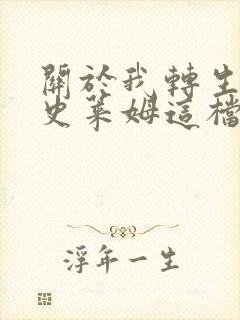 關於我轉生
史萊姆這檔
浮年一生